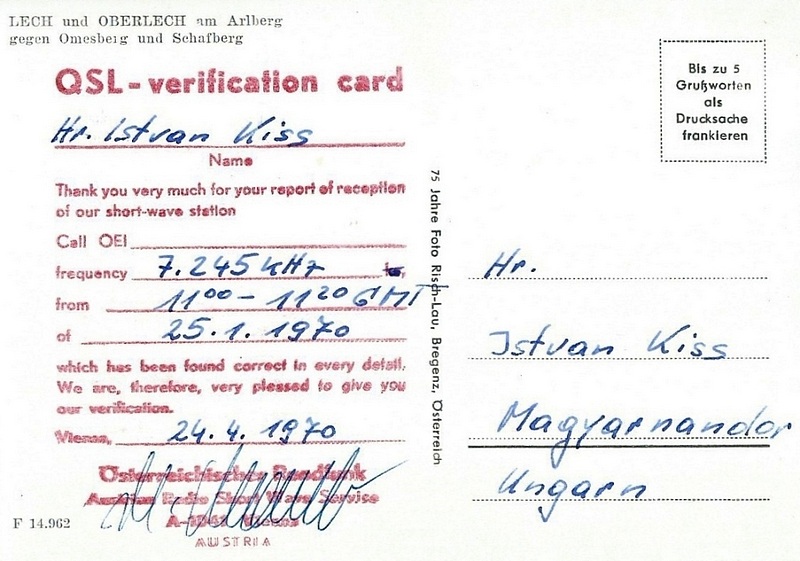 LECH und OBERLECH am Arlberg
gegen Omesberg und Schafberg
QSL-verification card
Hr. Istvan Kiss
Name
Thank you very much for your report of reception
of our short-wave station
Call OEI
frequency 7.245 kHz
from 11⁰⁰ - 11²⁰ GMT
of 25.1.1970
which has been found correct in every detail.
We are, therefore, very plessed to give you
our verification.
Vienna, 24.4.1970
Österreichischer Rundfunk
Austrian Radio Short Wave Service
AUSTRIA
F 14.962
75 Jahre Foto Risch-Lau, Bregenz, Österreich
Bis zu 5
Grußworten
als
Drucksache
frankieren
Hr.
Istvan Kiss
Magyarnandor
Ungarn